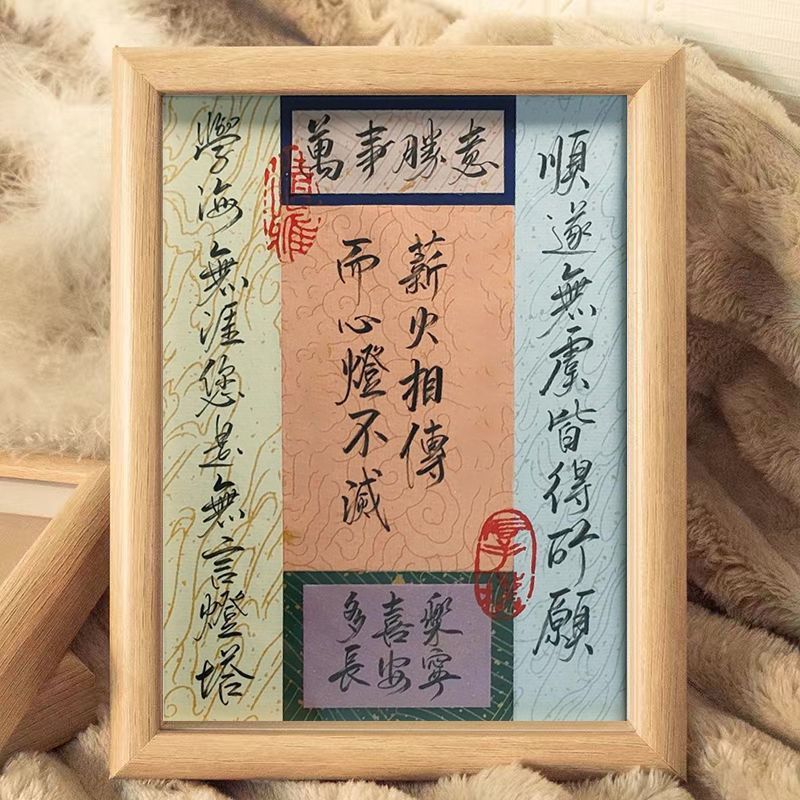 順遂無虞皆得所願
萬事勝意
薪火相傳
而心燈不滅
多喜樂
長安寧
學海無涯您是無言燈塔